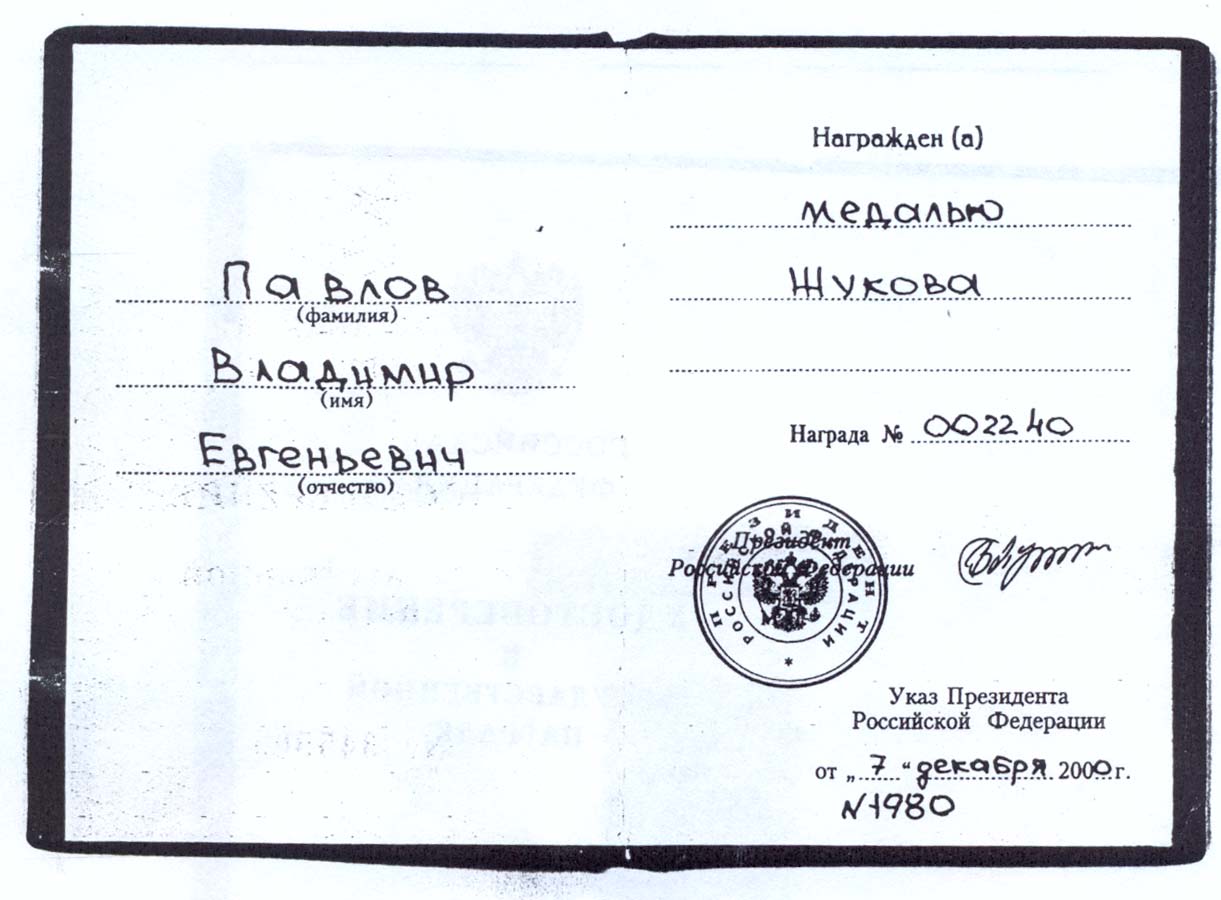 Павлов
(фамилия)
Владимир
(имя)
Евгеньевич
(отчество)
Награжден (а)
медалью
Жукова
Награда № 002240
Президент
Российской Федерации
ПРЕЗИДЕНТ
РОССИЙСКОЙ ФЕДЕРАЦИИ
Указ Президента
Российской Федерации
от „ 7 “ декабря 2000 г.
N1980